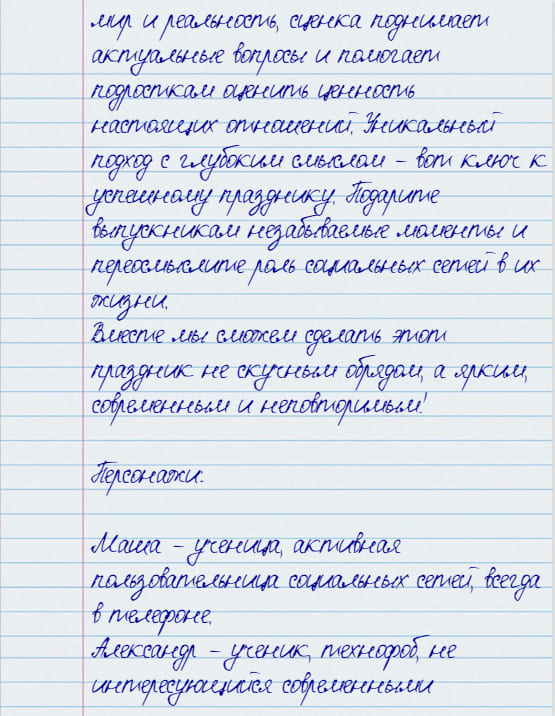 мир и реальность, сценка поднимает
актуальные вопросы и помогает
подросткам оценить ценность
настоящих отношений. Уникальный
подход с глубоким смыслом – вот ключ к
успешному празднику. Подарите
выпускникам незабываемые моменты и
переосмыслите роль социальных сетей в их
жизни.
Вместе мы сможем сделать этот
праздник не скучным обрядом, а ярким,
современным и неповторимым!
Персонажи:
Маша – ученица, активная
пользовательница социальных сетей, всегда
в телефоне.
Александр – ученик, технофоб, не
интересующийся современными